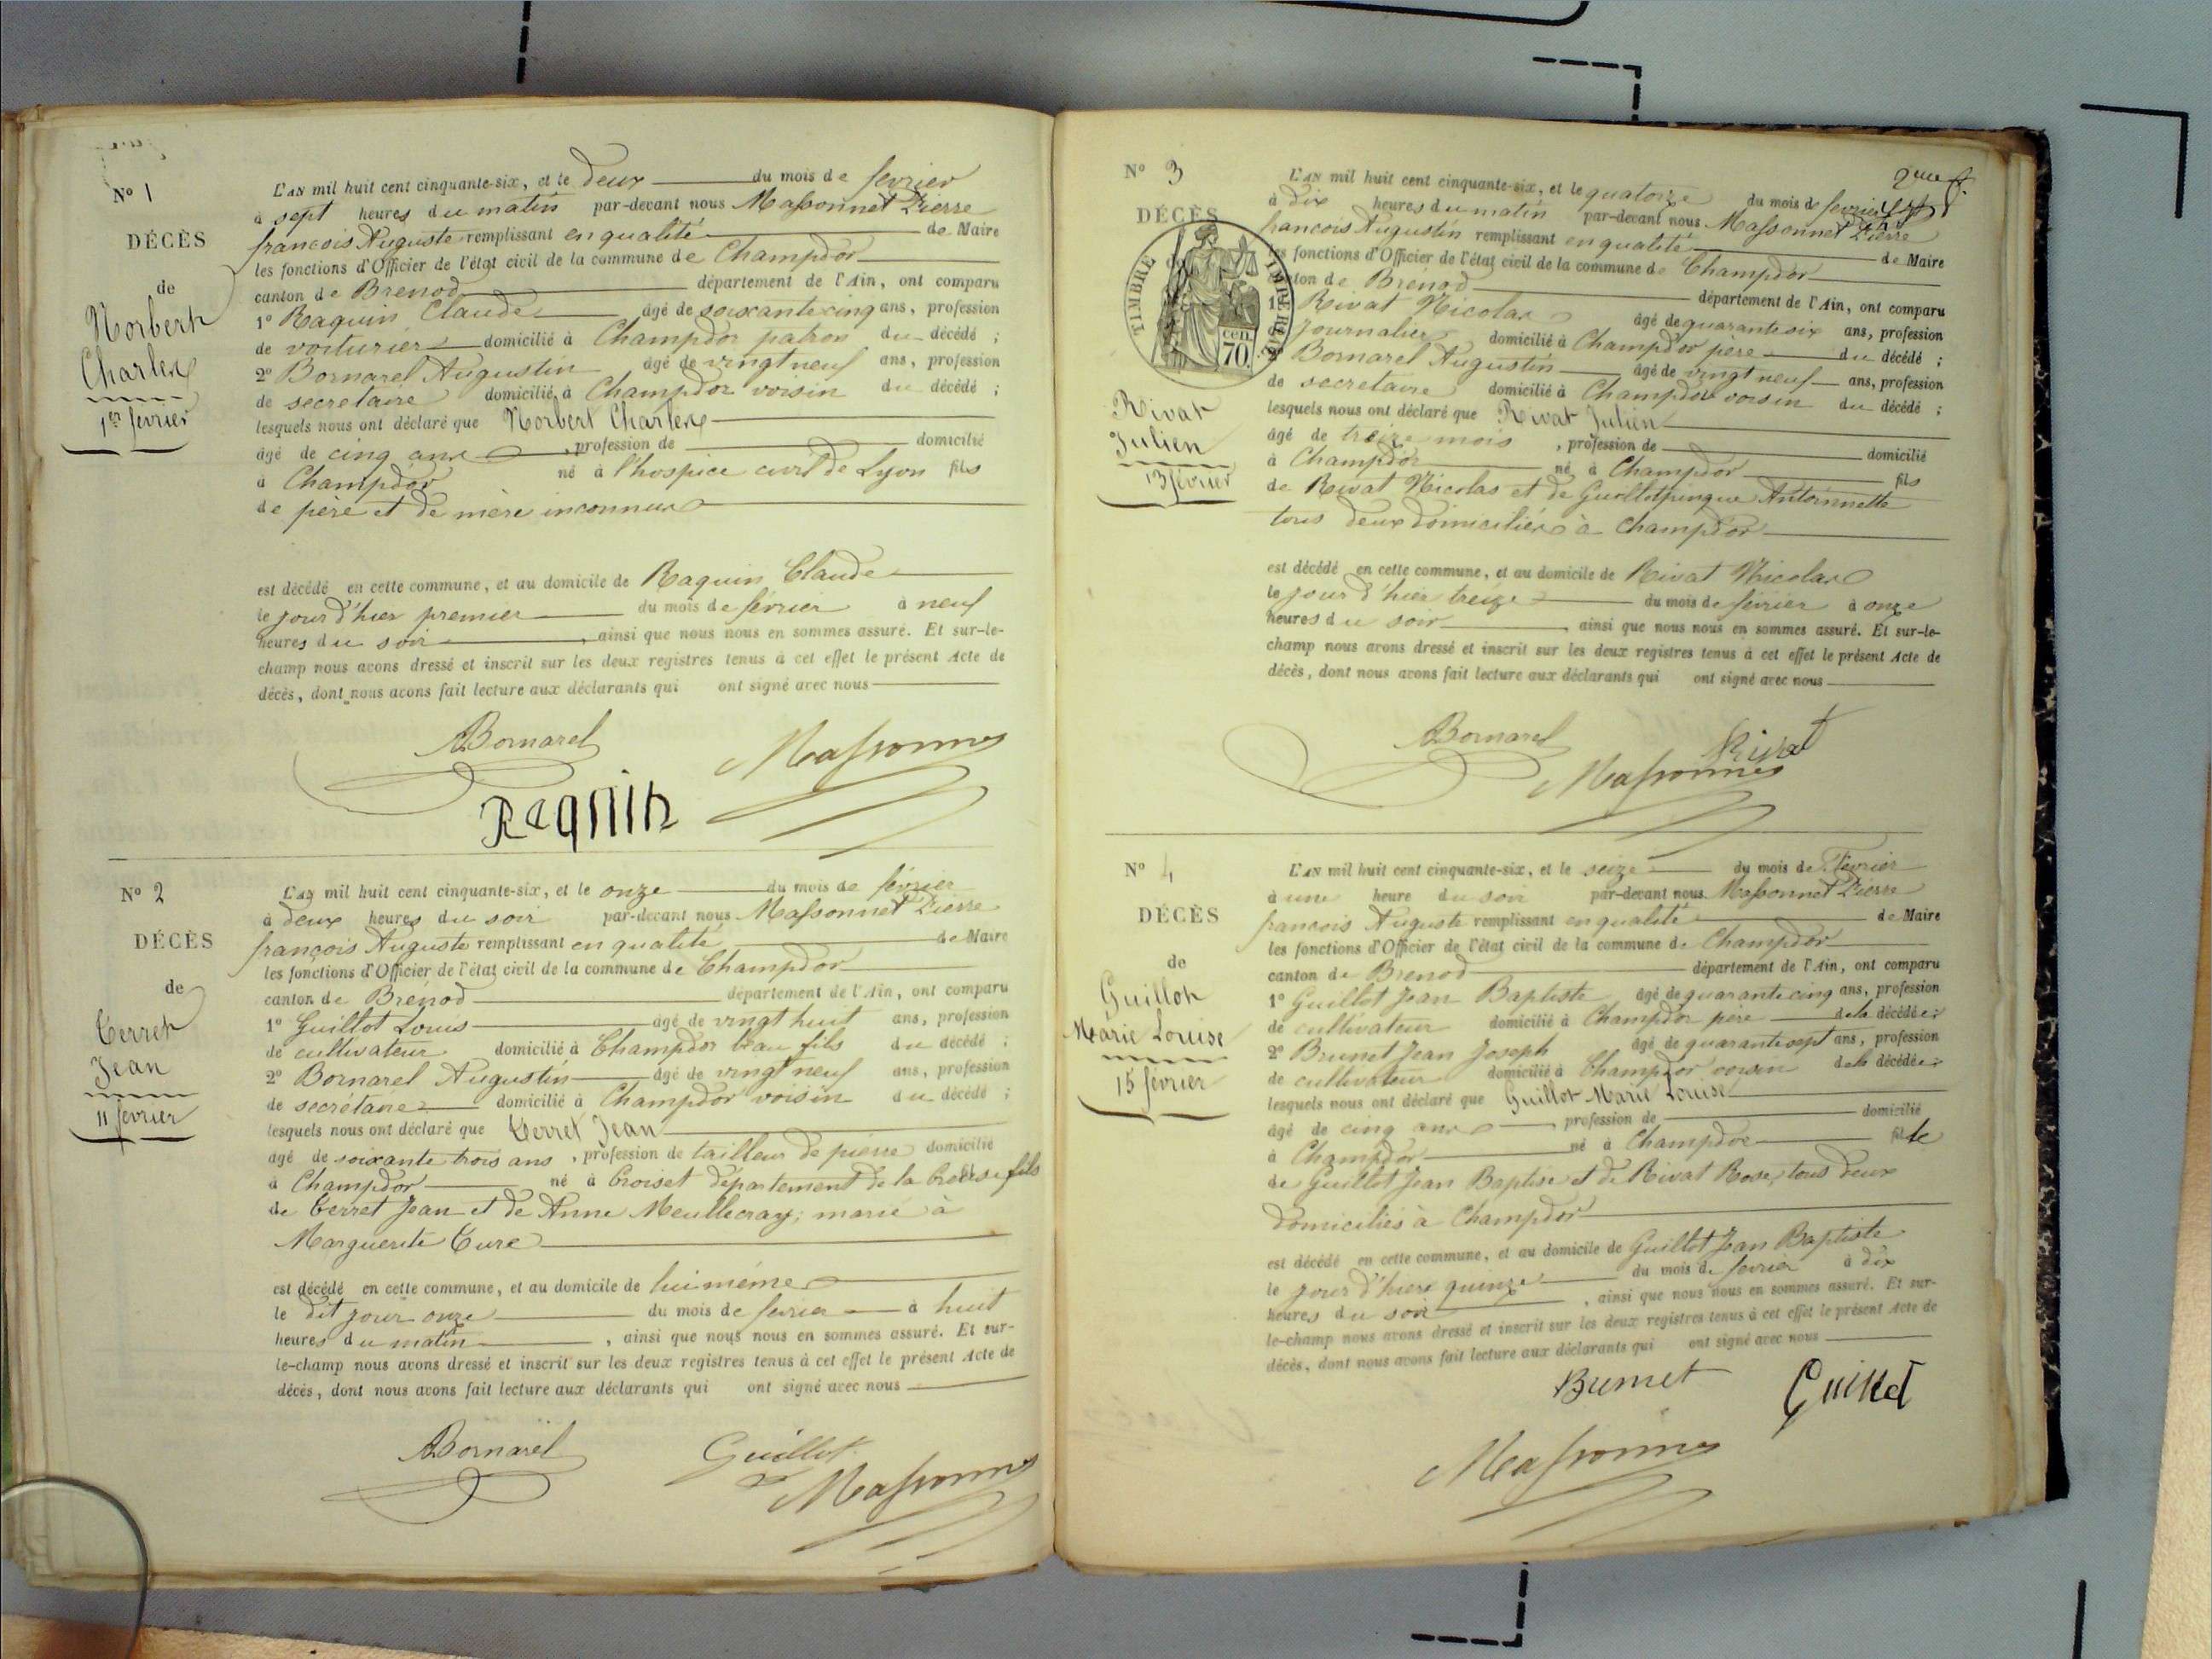 N° 1
DÉCÈS
de
Norbert
Charles
1er février
L'AN mil huit cent cinquante-six, et le deux du mois de février
à sept heures du matin par-devant nous Massonnet Pierre
françois Auguste remplissant en qualité de Maire
les fonctions d'Officier de l'état civil de la commune de Champdor
canton de Brenod département de l'Ain, ont comparu
1° Raquin Claude âgé de soixante cinq ans, profession
de voiturier domicilié à Champdor patron du décédé ;
2° Bornarel Augustin âgé de vingt neuf ans, profession
de secretaire domicilié à Champdor voisin du décédé ;
lesquels nous ont déclaré que Norbert Charles
âgé de cinq ans , profession de domicilié
à Champdor né à l'hospice civil de Lyon fils
de père et de mère inconnus
est décédé en cette commune, et au domicile de Raquin Claude
le jour d'hier premier du mois de février à neuf
heures du soir , ainsi que nous nous en sommes assuré. Et sur-le-
champ nous avons dressé et inscrit sur les deux registres tenus à cet effet le présent Acte de
décès, dont nous avons fait lecture aux déclarants qui ont signé avec nous
ABornarel
Massonnet
Raquin
N° 2
DÉCÈS
de
Terret
Jean
11 février
L'AN mil huit cent cinquante-six, et le onze du mois de février
à deux heures du soir par-devant nous Massonnet Pierre
françois Auguste remplissant en qualité de Maire
les fonctions d'Officier de l'état civil de la commune de Champdor
canton de Brénod département de l'Ain, ont comparu
1° Guillot Louis âgé de vingt huit ans, profession
de cultivateur domicilié à Champdor beau fils du décédé ;
2° Bornarel Augustin âgé de vingt neuf ans, profession
de secrétaire domicilié à Champdor voisin du décédé ;
lesquels nous ont déclaré que Terret Jean
âgé de soixante trois ans , profession de tailleur de pierre domicilié
à Champdor né à Croiset département de la fils
de Terret Jean et de Anne marié à
Marguerite Cure
est décédé en cette commune, et au domicile de lui même
le dit jour onze du mois de février à huit
heures du matin , ainsi que nous nous en sommes assuré. Et sur-
le-champ nous avons dressé et inscrit sur les deux registres tenus à cet effet le présent Acte de
décès, dont nous avons fait lecture aux déclarants qui ont signé avec nous
ABornarel
Guillot
Massonnet
2me f.
N° 3
DÉCÈS
TIMBRE IMPERIAL
cen.
70.
Rivat
Julien
13 février
L'AN mil huit cent cinquante-six, et le quatorze du mois de février
à dix heures du matin par-devant nous Massonnet Pierre
francois Augustin remplissant en qualité de Maire
les fonctions d'Officier de l'état civil de la commune de Champdor
canton de Brénod département de l'Ain, ont comparu
1° Rivat Nicolas âgé de quarante six ans, profession
journalier domicilié à Champdor père du décédé ;
Bornarel Augustin âgé de vingt neuf ans, profession
de secretaire domicilié à Champdor voisin du décédé ;
lesquels nous ont déclaré que Rivat Julien
âgé de treize mois , profession de domicilié
à Champdor né à Champdor fils
de Rivat Nicolas et de Guillotpingue Antoinnette
tous deux domiciliés à Champdor
est décédé en cette commune, et au domicile de Rivat Nicolas
le jour d'hier treize du mois de février à onze
heures du soir , ainsi que nous nous en sommes assuré. Et sur-le-
champ nous avons dressé et inscrit sur les deux registres tenus à cet effet le présent Acte de
décès, dont nous avons fait lecture aux déclarants qui ont signé avec nous
ABornarel
Rivat
Massonnet
N° 4
DÉCÈS
de
Guillot
Marie Louise
15 février
L'AN mil huit cent cinquante-six, et le seize du mois de Février
à une heure du soir par-devant nous Massonnet Pierre
francois Auguste remplissant en qualité de Maire
les fonctions d'Officier de l'état civil de la commune de Champdor
canton de Brenod département de l'Ain, ont comparu
1° Guillot Jean Baptiste âgé de quarante cinq ans, profession
de cultivateur domicilié à Champdor père de la décédée ;
2° Brunet Jean Joseph âgé de quarante sept ans, profession
de cultivateur domicilié à Champdor voisin de la décédée ;
lesquels nous ont déclaré que Guillot Marie Louise
âgé de cinq ans profession de domicilié
à Champdor né à Champdor fille
de Guillot Jean Baptise et de Rivat Rose, tous deux
domiciliés à Champdor
est décédé en cette commune, et au domicile de Guillot Jean Baptiste
le jour d'hier quinze du mois de fevrier à dix
heures du soir , ainsi que nous nous en sommes assuré. Et sur-
le-champ nous avons dressé et inscrit sur les deux registres tenus à cet effet le présent Acte de
décès, dont nous avons fait lecture aux déclarants qui ont signé avec nous
Brunet
Guillot
Massonnet